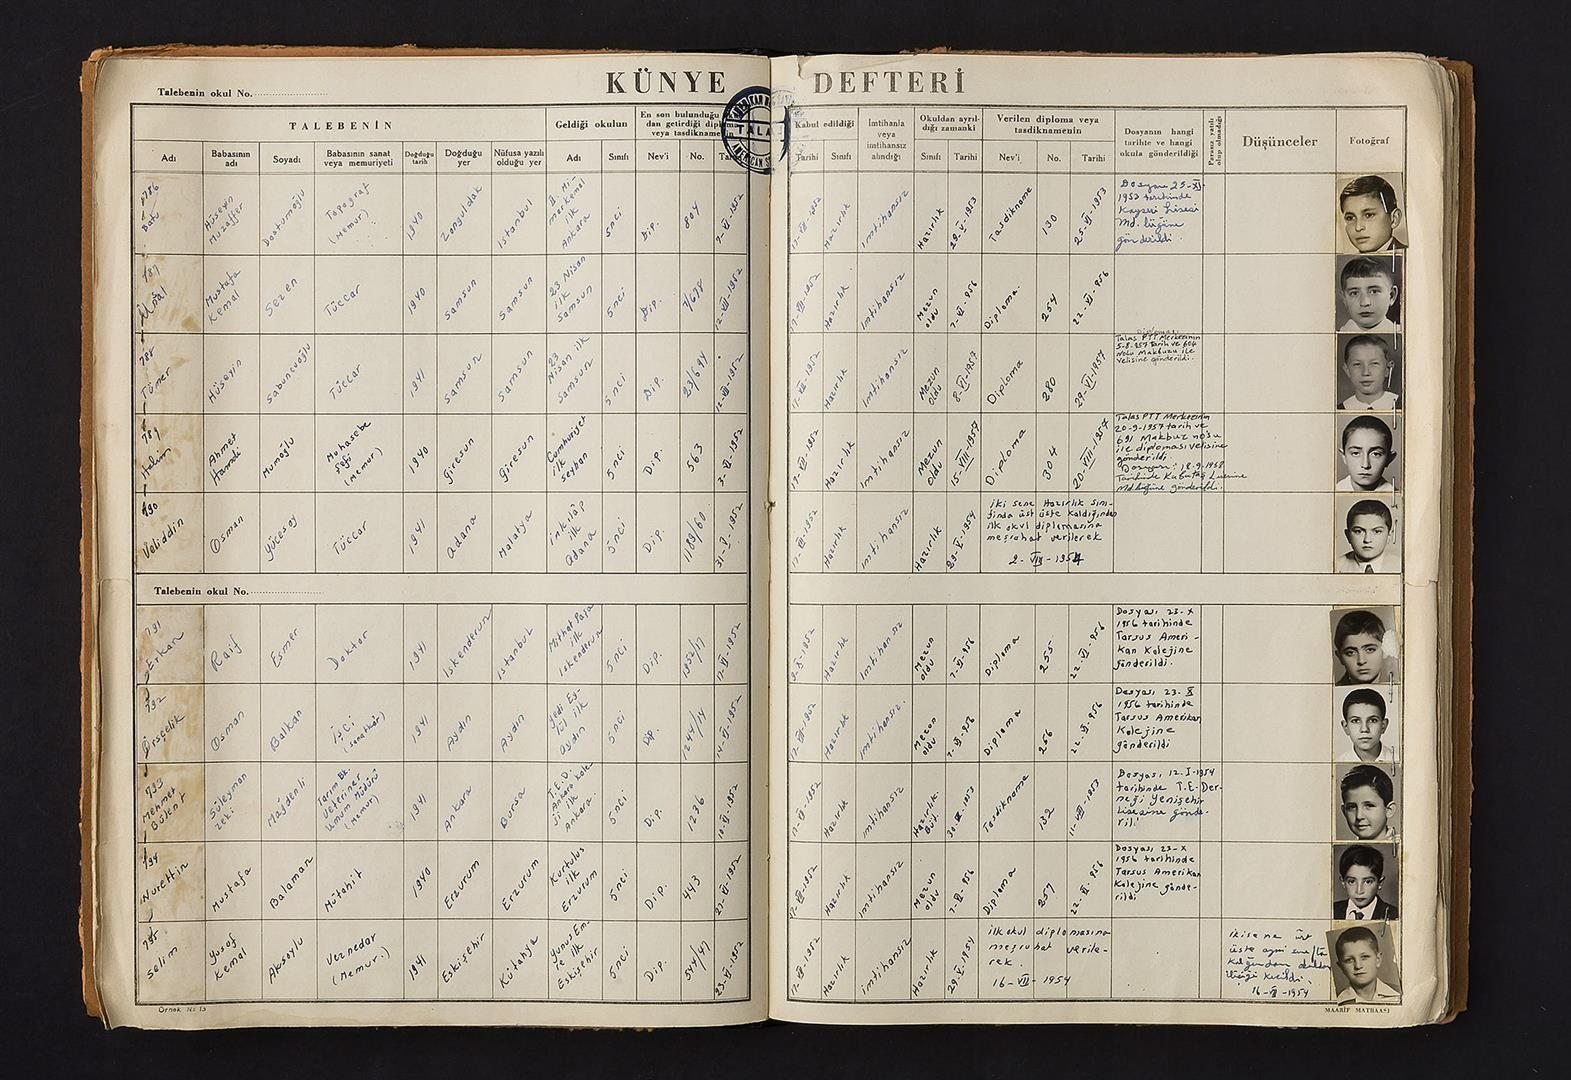 KÜNYE DEFTERİ
Talebenin okul No.
TALABENİN
Geldiği okulun
En son bulunduğu
dan getirdiği diploma
veya tasdiknamenin
Kabul edildiği
İmtihanla
veya
imtihansız
alındığı
Okuldan ayrıl-
dığı zamanki
Verilen diploma veya
tasdiknamenin
Dosyanın hangi
tarihte ve hangi
okula gönderildiği
Parasız yatılı
olup olmadığı
Düşünceler
Fotoğraf
Adı
Babasının
adı
Soyadı
Babasının sanat
veya memuriyeti
Doğduğu
tarih
Doğduğu
yer
Nüfusa yazılı
olduğu yer
Adı
Sınıfı
Nev'i
No.
Tarihi
Tarihi
Sınıfı
Sınıfı
Tarihi
Nev'i
No.
Tarihi
TALAS
AMERICAN
786
Batu
Hüseyin
Muzaffer
Dosturoğlu
Topograf
(Memur)
1940
Zonguldak
İstanbul
Mimar Kemal
ilk
Ankara
5nci
Dip.
804
Hazırlık
imtihansız
Hazırlık
Tasdikname
130
25-VI-1953
Dosyası 25-XI-
1953 tarihinde
Kayseri Lisesi
Md. lüğüne
gönderildi.
787
Ünal
Mustafa
Kemal
Sezen
Tüccar
1940
Samsun
Samsun
23 Nisan
ilk
Samsun
5nci
Dip.
7/678
Hazırlık
imtihansız
Mezun
oldu
Diploma.
254
22-VI-956
788
Tümer
Hüseyin
Sabuncuoğlu
Tüccar
1941
Samsun
Samsun
23
Nisan ilk
Samsun
5nci
Dip.
23/694
Hazırlık
imtihansız
Mezun
oldu
8-VI-1957
Diploma
280
29-VI-1957
Diploması
Talas PTT Merkezinin
5-8-957 tarih ve 604
Nolu Makbuzu ile
velisine gönderildi.
789
Halim
Ahmet
Hamdi
Mumoğlu
Muhasebe
Şefi
(Memur)
1940
Giresun
Giresun
Cumhuriyet
ilk
Seyhan
5nci
Dip.
563
Hazırlık
imtihansız
Mezun
oldu
15-VIII-1957
Diploma
304
20-VIII-1957
Talas PTT Merkezinin
20-9-1957 tarih ve
691 Makbuz no'su
ile diploması velisine
gönderildi.
Dosyası: 18-9-1958
Tarihinde Kabataş Lisesine
Md.lüğüne gönderildi.
790
Veliddin
Osman
Yücesoy
Tüccar
1941
Adana
Malatya
inkılâp
ilk
Adana
5nci
Dip.
1189/60
Hazırlık
imtihansız
Hazırlık
29-V-1954
iki sene Hazırlık sını-
fında üst üste kaldığından
ilk okul diplomasına
meşruhat verilerek
2-VII-1954
Talebenin okul No.
791
Erkan
Raif
Esmer
Doktor
1941
İskenderun
İstanbul
Mithat Paşa
ilk
İskenderun
5nci
Dip.
1952/17
Hazırlık
imtihansız
Mezun
oldu
Diploma
255
22-VI-956
Dosyası 23-X
1956 tarihinde
Tarsus Ameri-
kan Kolejine
gönderildi.
792
Örsçelik
Osman
Balkan
İşçi
(sanatkâr)
1941
Aydın
Aydın
Yedi Ey-
lül ilk
Aydın
5nci
Dip
1244/14
Hazırlık
imtihansız.
Mezun
oldu
Diploma
256
22-VI-956
Dosyası 23-X
1956 tarihinde
Tarsus Amerikan
Kolejine
gönderildi
793
Mehmet
Bülent
Süleyman
Zeki
Mağdenli
Tarım Bk.
Veteriner
Umum Müdürü
(Memur)
1941
Ankara
Bursa
T.E.D.
Ankara Kole-
ji ilk
Ankara.
5nci
Dip.
1236
Hazırlık
imtihansız
Hazırlık
Tasdikname
132
11-VIII-1953
Dosyası 12.I-1954
tarihinde T.E.Der-
neği Yenişehir
lisesine gönde-
rildi
794
Nurettin
Mustafa
Balaman
Mütahit
1940
Erzurum
Erzurum
Kurtuluş
ilk
Erzurum
5nci
Dip.
443
Hazırlık
imtihansız
Mezun
oldu
Diploma
257
22-VI-956
Dosyası 23-X
1956 tarihinde
Tarsus Amerikan
Kolejine gönde-
rildi
795
Selim
Yusuf
Kemal
Aksoylu
Veznedar
(Memur.)
1941
Eskişehir
Kütahya
Yunus Em-
re ilk
Eskişehir
5nci
Dip.
544/47
Hazırlık
imtihansız
Hazırlık
29-V-1954
ilk okul diplomasına
meşruhat verile-
rek
16-VII-1954
iki sene üst
üste aynı sınıfta
kaldığından okuldan
ilişiği kesildi.
16-VII-1954
Örnek No 15
MAARİF MATBAASI